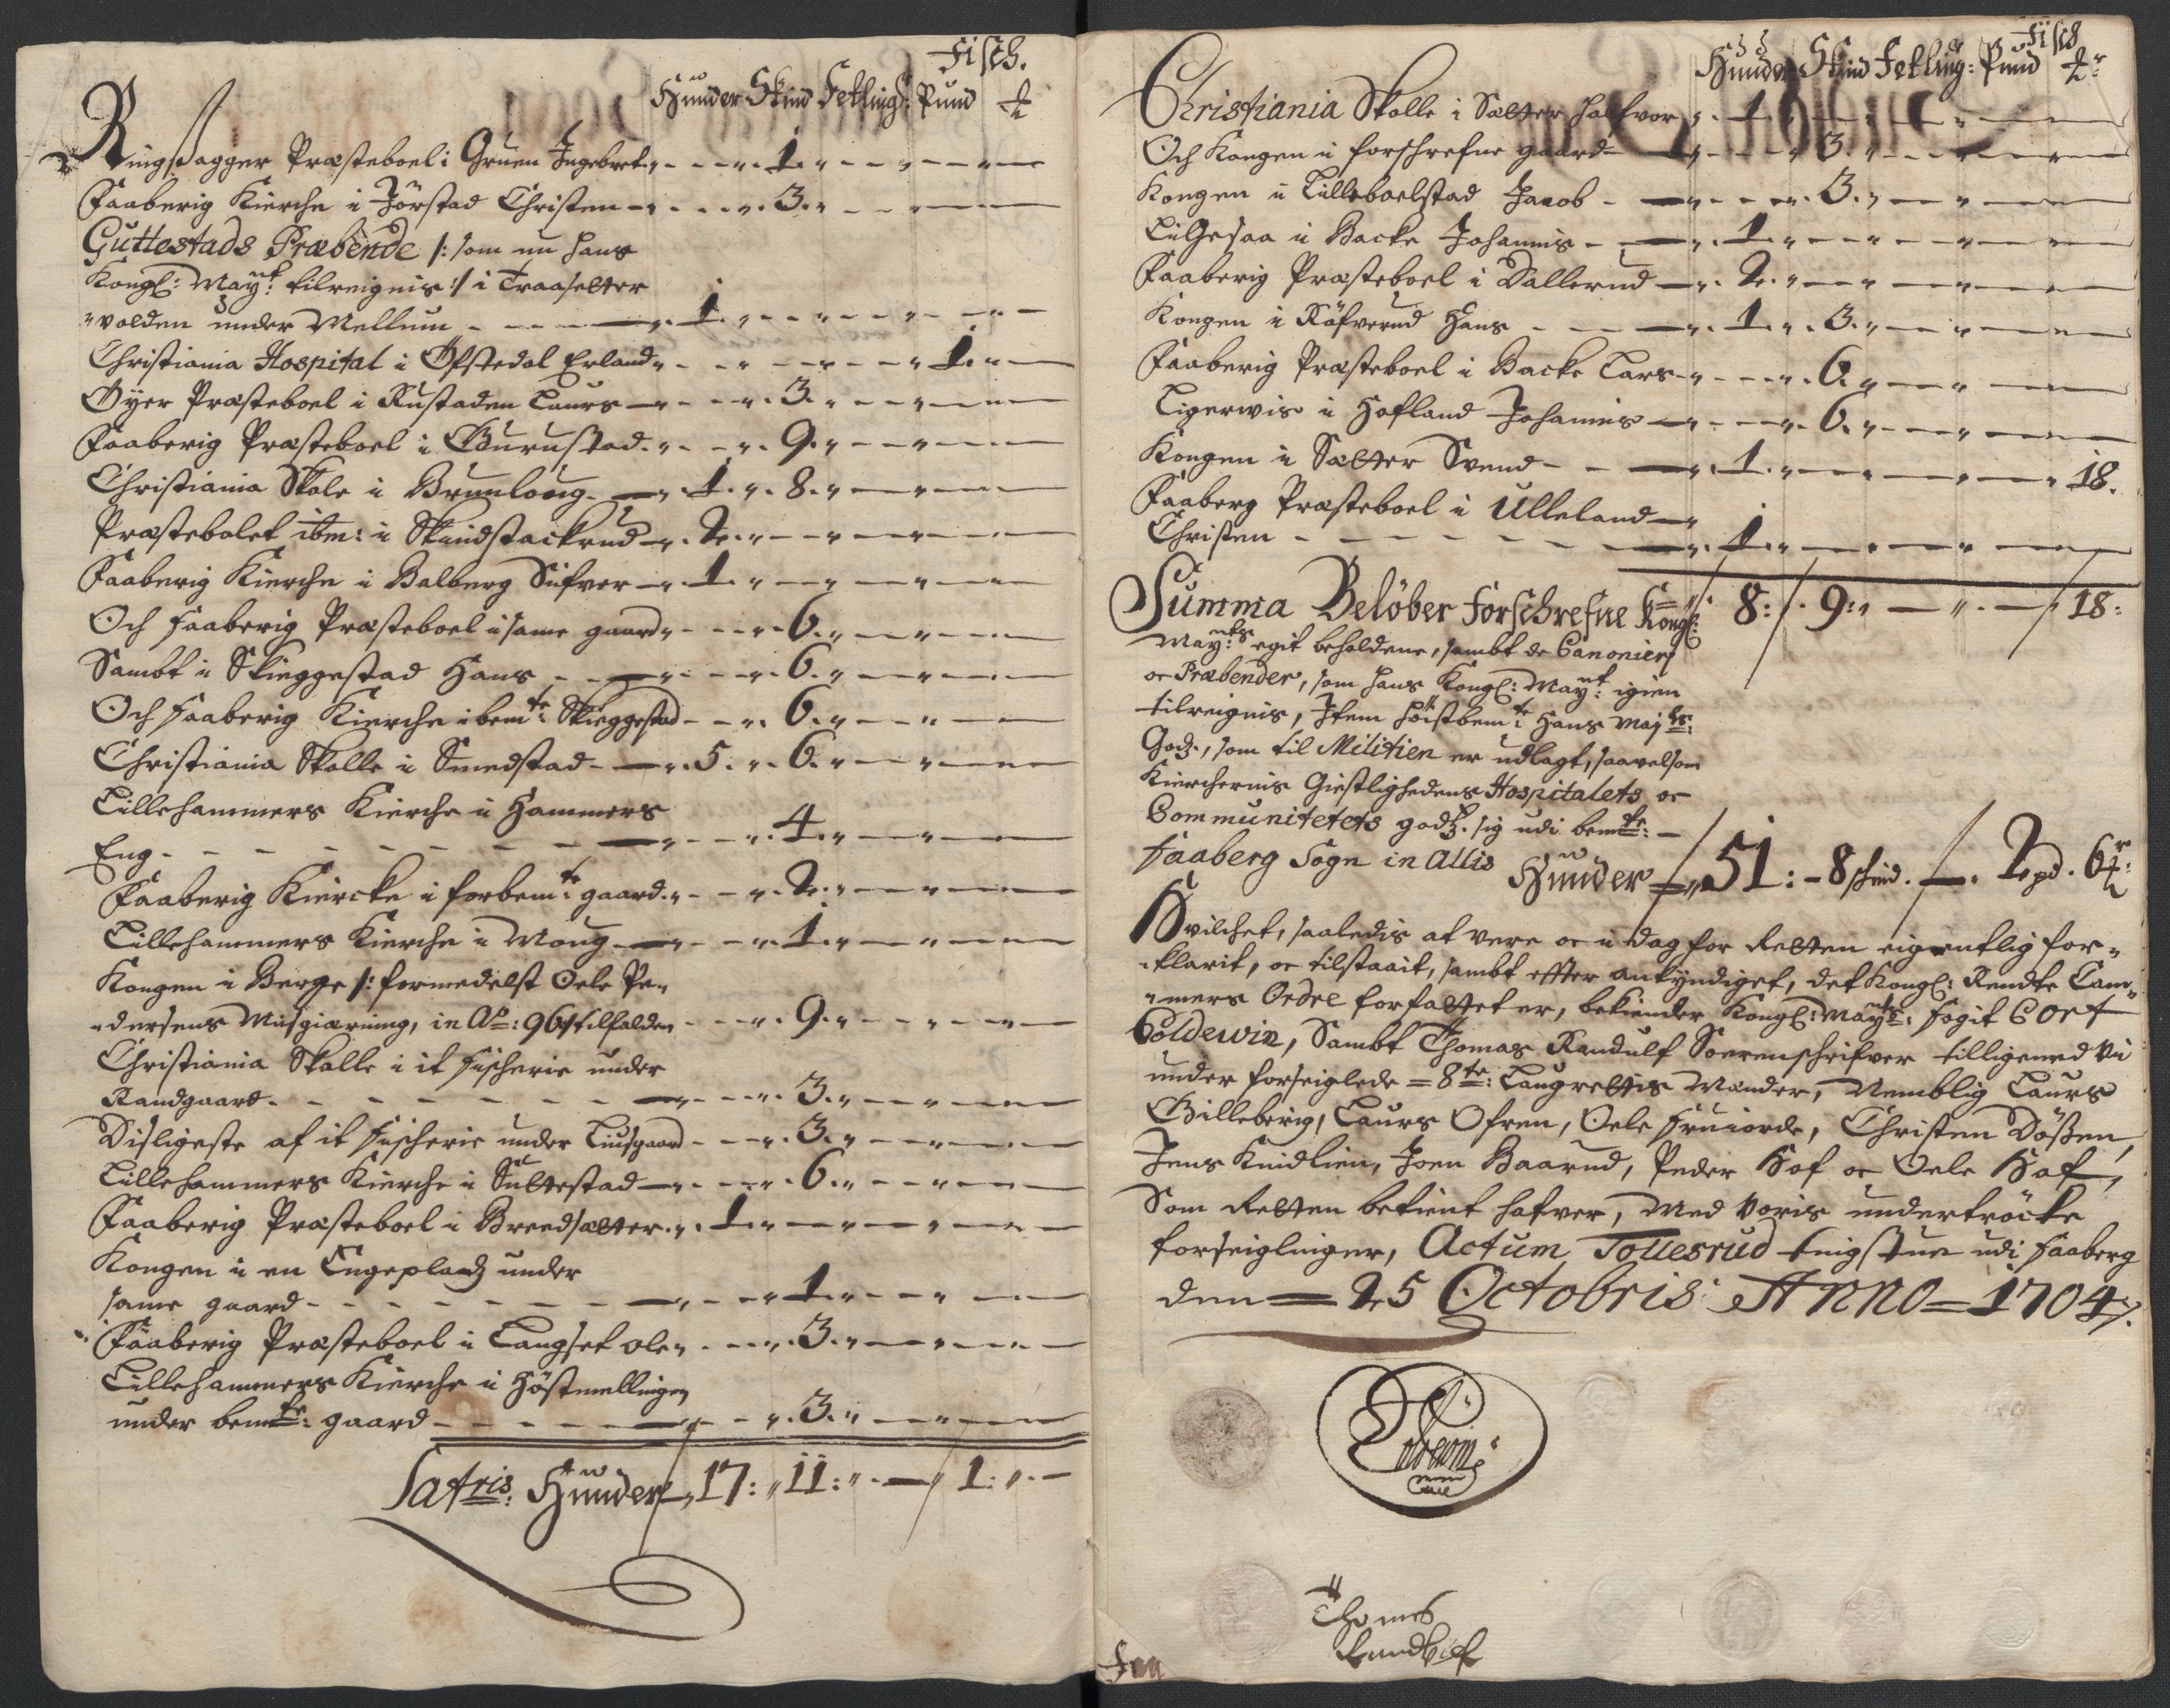 Fisch.
Hunder Skind Fetling: Pund
Ringsagger Præsteboel i Gruen Ingebret 1.
Faaberig Kierche i Jörstad Christen 3.
Guttestads Præbende /: som nu hans
Kongl: Mayt: tilreignis :/ i Traaselter
volden under Mellum 1.
Christiania Hospital i Ofstedal Erland 1.
Öyer Præsteboel i Rustaden Laurs 3.
Faaberig Præsteboel i Gurustad 9.
Christiania Skole i Brunlaug 1. 8.
Præstebolet ibm: i Skindstackrud 2.
Faaberig Kierche i Balberg Sifver 1.
Och Faaberig Præsteboel i same gaard 6.
Sambt i Skieggestad Hans 6.
Och Faaberig Kierche i bemte: Skieggestad 6.
Christiania Skolle i Smedstad 5. 6.
Lillehammers Kierche i Hammers
Eng 4.
Faaberig Kiercke i forbemte: gaard 2.
Lillehammers Kierche i Moug 1.
Kongen i Berge /: formedelst Oele Pe-
dersens Misgierning, in Ao: 96 tilfalden 9.
Christiania Skolle i it fischerie under
Randgaard 3.
Disligeste af it fischerie under Liusgaard 3.
Lillehammers Kierche i Sultestad 6.
Faaberig Præsteboel i Breedsætter 1.
Kongen i en Engeplads under
same gaard 1.
Faaberig Præsteboel i Langset ole 3.
Lillehammers Kierche i Höstmellingen
under bemte: gaard 3.
Latris: Hunder 17: 11: 1:
Fisch
Hunder Skind Fetling: Pund
Christiania Skolle i Sætter Halfvor 1.
Och Kongen i forschrefne gaard 3.
Kongen i Lilleboelstad Jacob 3.
Lilgesaa i Backe Johannis 1.
Faaberig Præsteboel i Dallerud 2.
Kongen i Röfverud Hans 1. 3.
Faaberig Præsteboel i Backe Lars 6.
Ligerwis i Hofland Johannis 6.
Kongen i Sætter Svend 1. 18.
Faaberg Præsteboel i Ulleland
Christen 1.
Summa Belöber Forschrefne Kongl:
8: 9: 18:
Mayts: egit beholdene, sambt de Canonier
oc Præbender, som hans Kongl: Mayt: igien
tilreignis, Item höistbemte: Hans Majts:
Gods, som til Militien er udlagt, saavelsom
Kierchernis Giestlighedens Hospitalets oc
Communitetets gods. sig udi bemte:
Faaberg Sogn in Allis Hunder 51: 8 skind. 2 pd. 6
Hvilchet, saaledis at vere oc i dag for Retten eigentlig for-
klarit, oc tilstaait, sambt effter ankyndiget, det Kongl: Rendte Cam-
mers Ordre forfattet er, bekiender Kongl: Mayts: fogit Cort
Coldewin, Sambt Thomas Randulf Sorenschrifver tilligemed Vi
under forseiglede = 8te: Laugrettis Mænder, Nemblig Laurs
Gilleberg, Laurs Ofren, Oele Fruiorde, Christen Dößen,
Jens Knidlien, Joen Baarud, Peder Hof oc Oele Hof,
Som Retten betient hafver, Med Voris undertröckte
forseiglinger, Actum Tollesrud tingstue udi Faaberg
den = 25 Octobris Anno = 1704
Coldewin
Thomes
Randulf